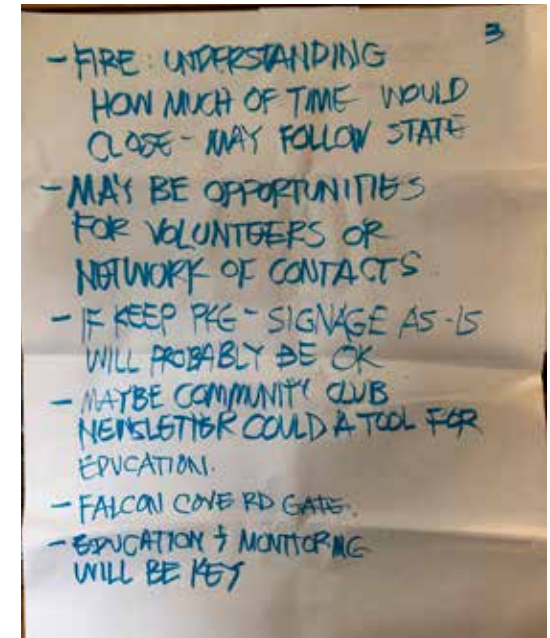 3
- FIRE: UNDERSTANDING
HOW MUCH OF TIME WOULD
CLOSE - MAY FOLLOW STATE
- MAY BE OPPORTUNITIES
FOR VOLUNTEERS OR
NETWORK OF CONTACTS
- IF KEEP PKG - SIGNAGE AS-IS
WILL PROBABLY BE OK
- MAYBE COMMUNITY CLUB
NEWSLETTER COULD A TOOL FOR
EDUCATION.
- FALCON COVE RD GATE.
- EDUCATION & MONITORING
WILL BE KEY